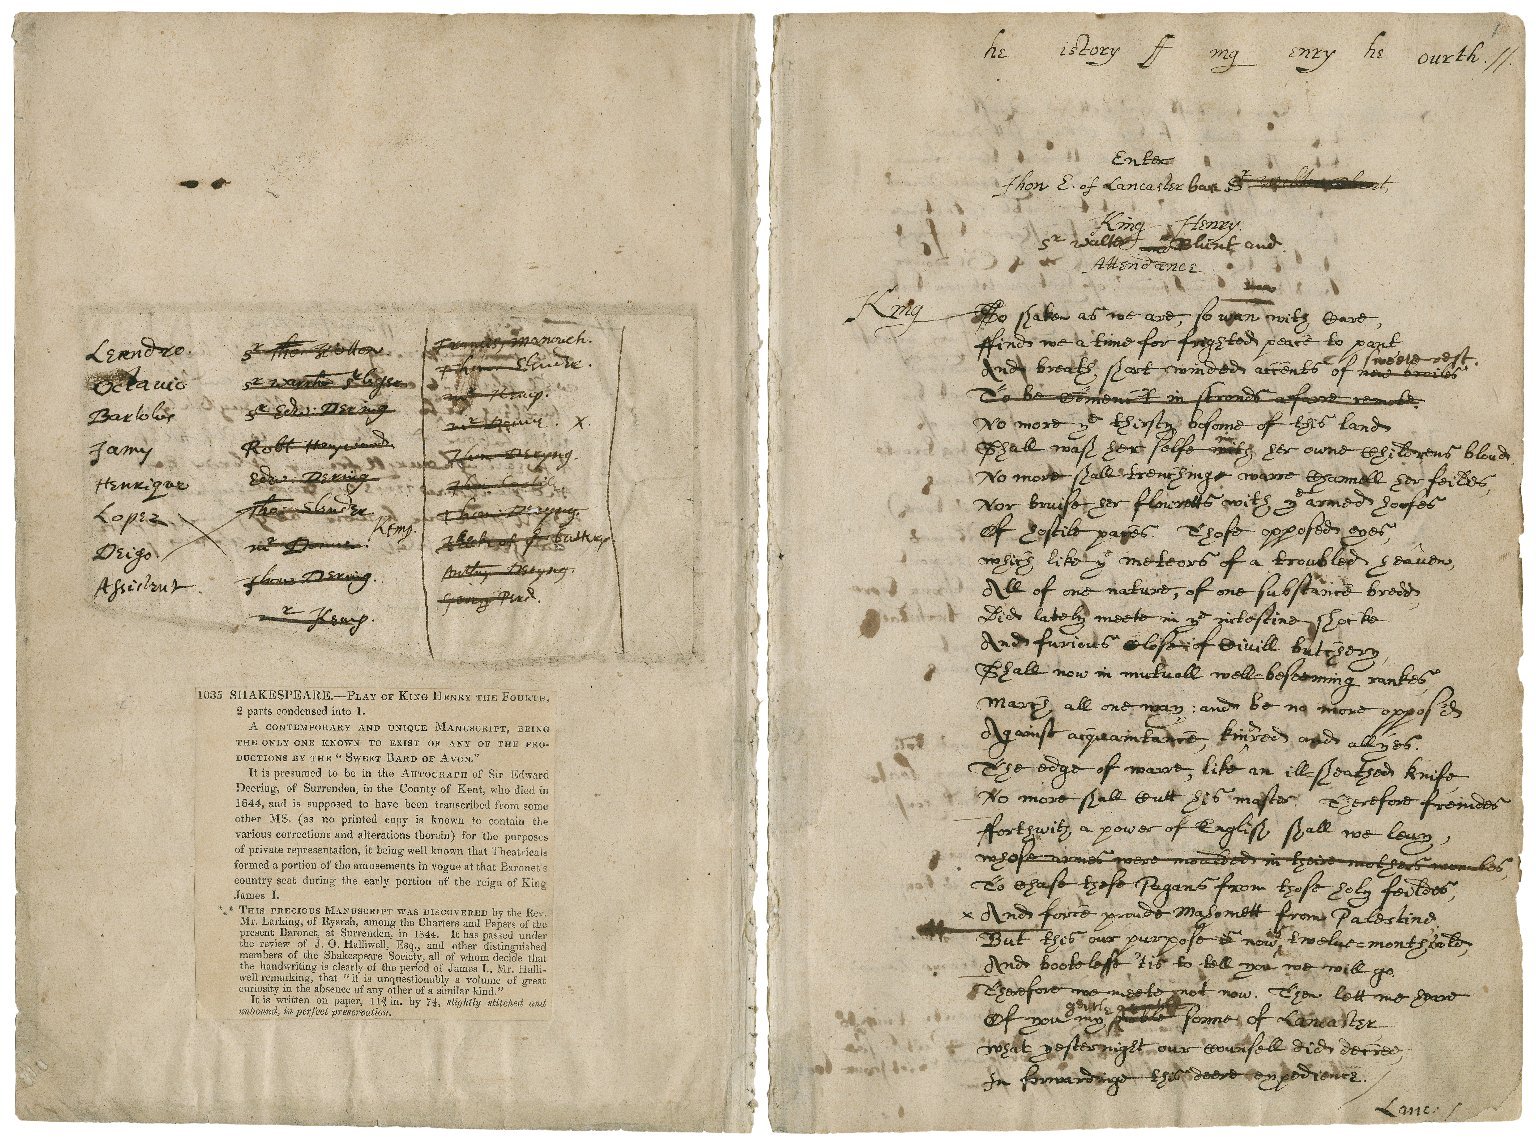 Leandro. Sr Tho: Wotton. Francis Manouch.
Octavio Sr Warha: St leger Jhon Skuder.
Bartolus Sr Edw: Dering mr Kemp.
Jamy Robt Heywood X.
Henrique Edw: Dering Jhon Deryng.
Lopez Tho: Skuder
Deigo. mr Donne. Kemp Jhon: Deryng.
Assistent Jhon Dering. Antho: Deryng.
mr Kemp.
1035 SHAKESPEARE.—PLAY OF KING HENRY THE FOURTH,
2 parts condensed into 1.
A CONTEMPORARY AND UNIQUE MANUSCRIPT, BEING
THE ONLY ONE KNOWN TO EXIST OF ANY OF THE PRO-
DUCTIONS BY THE "SWEET BARD OF AVON."
It is presumed to be in the AUTOGRAPH of Sir Edward
Deering, of Surrenden, in the County of Kent, who died in
1644, and is supposed to have been transcribed from some
other MS. (as no printed copy is known to contain the
various corrections and alterations therein) for the purposes
of private representation, it being well known that Theatricals
formed a portion of the amusements in vogue at that Baronet's
country seat during the early portion of the reign of King
James I.
*** THIS PRECIOUS MANUSCRIPT WAS DISCOVERED by the Rev.
Mr. Larking, of Ryarsh, among the Charters and Papers of the
present Baronet, at Surrenden, in 1844. It has passed under
the review of J. O. Halliwell, Esq., and other distinguished
members of the Shakespeare Society, all of whom decide that
the handwriting is clearly of the period of James I., Mr. Halli-
well remarking, that "it is unquestionably a volume of great
curiosity in the absence of any other of a similar kind."
It is written on paper, 11¾ in. by 7¾, slightly stitched and
unbound, in perfect preservation.
1
he istory ff ing enry he ourth.//.
Enter
Jhon E. of Lancaster Sr Walter Blunt,
King Henry.
Sr Walter Blunt and
Attendence.
King So shaken as we are, so wan with care,
ffind we a time for frighted peace to pant
sweete rest.
And breath short winded accents of new broiles
To be comenc't in stronds afarre remote.
No more ye thirsty bosome of this land
Shall wash her selfe with her owne childrens bloud.
No more shall trenching warre channell her feilds,
Nor bruise her flowretts with ye armed hoofes
Of hostile paces. Those opposed eyes,
which like ye meteors of a troubled heaven,
All of one nature, of one substance bredd,
Did lately meete in ye intestine shocke
And furious close of civill butchery,
Shall now in mutuall well-beseeming rankes
March all one way, and be no more oppos'd
Against acquaintance, kinred and allyes.
The edge of warre, like an ill-sheathed knife
No more shall cutt his master. Therefore freindes
fforthwith a power of English shall we levy,
whose armes were moulded in theire mothers wombes,
To chase these Pagans from those holy feildes,
x And force proude Mahomett from Palestine
But this our purpose is now twelve-month olde,
And bootelesse 'tis to tell you we will go.
Therefore we meete not now. Then lett me heare
gentle
Of you my noble sonne of Lancaster
What yesternight our counsell did decree,
In forwardinge this deere expedience.
Lanc:/